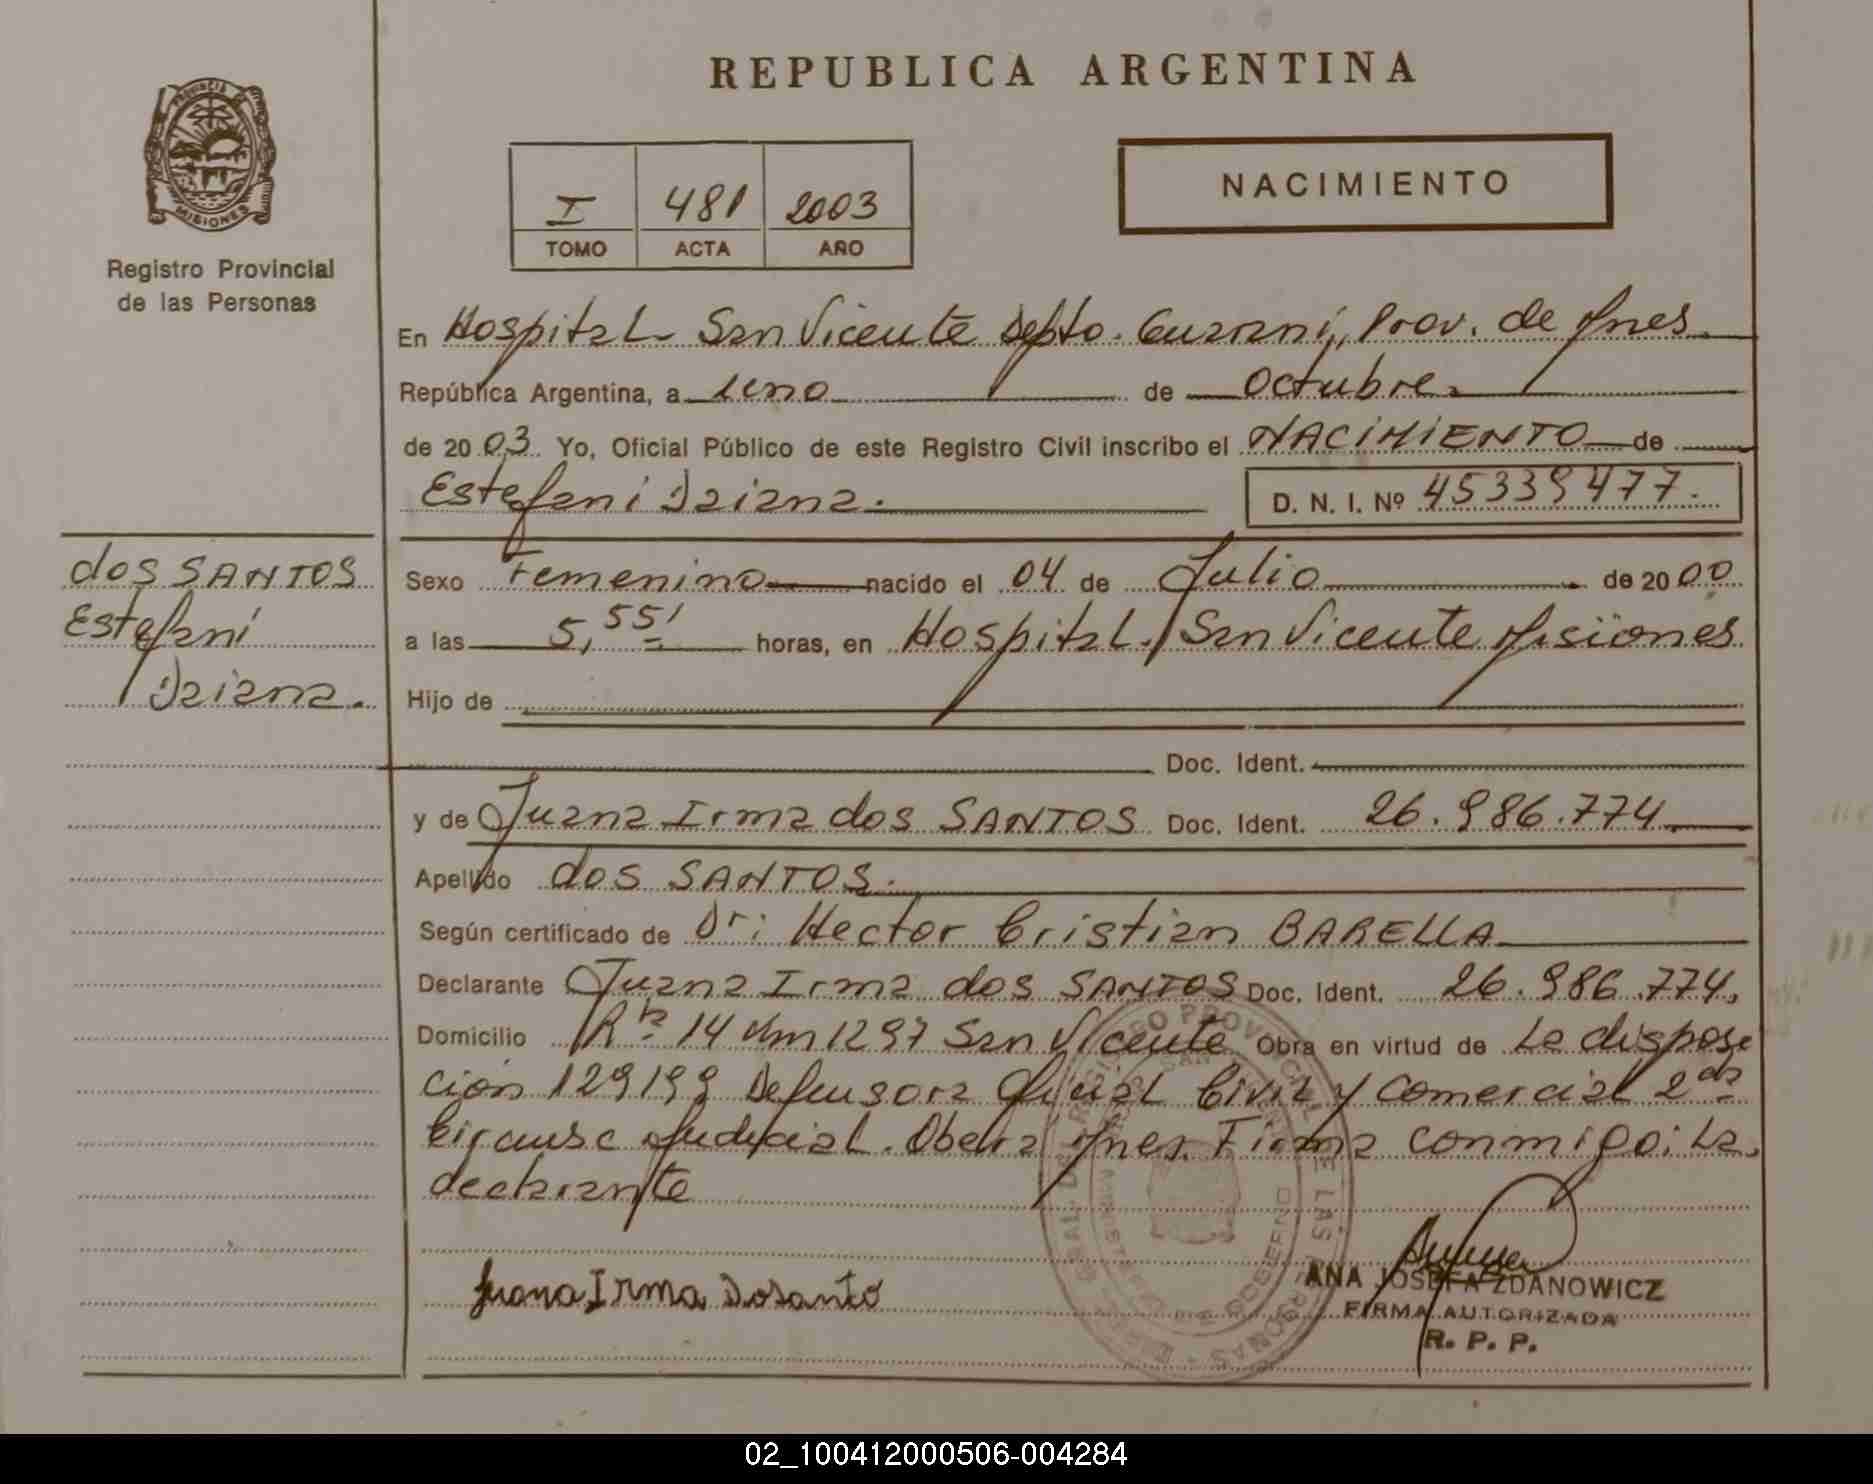 REPUBLICA ARGENTINA
PROVINCIA DE
MISIONES
Registro Provincial
de las Personas
I 481 2003
TOMO ACTA AÑO
NACIMIENTO
En Hospital San Vicente Depto. Guarani, Prov. de Mnes
República Argentina, a uno de Octubre
de 20 03. Yo, Oficial Público de este Registro Civil inscribo el NACIMIENTO de
Estefani Daiana.
D. N. I. Nº 45339477.
dos SANTOS
Estefani
Daiana.
Sexo Femenino nacido el 04 de Julio de 20 00
a las 5,55' horas, en Hospital San Vicente Misiones
Hijo de
Doc. Ident.
y de Juana Irma dos SANTOS Doc. Ident. 26.986.774
Apellido dos SANTOS.
Según certificado de Dr: Hector Cristian BARELLA
Declarante Juana Irma dos SANTOS Doc. Ident. 26.986.774,
Domicilio Rta 14 Km 1297 San Vicente Obra en virtud de La disposi
ción 129199 Defensora Oficial Civil y Comercial 2da
Circunsc Judicial. Obera Mnes. Firma conmigo: La
declarante
Juana Irma Dosanto
ANA JOSEFA ZDANOWICZ
FIRMA AUTORIZADA
R. P. P.
02_100412000506-004284